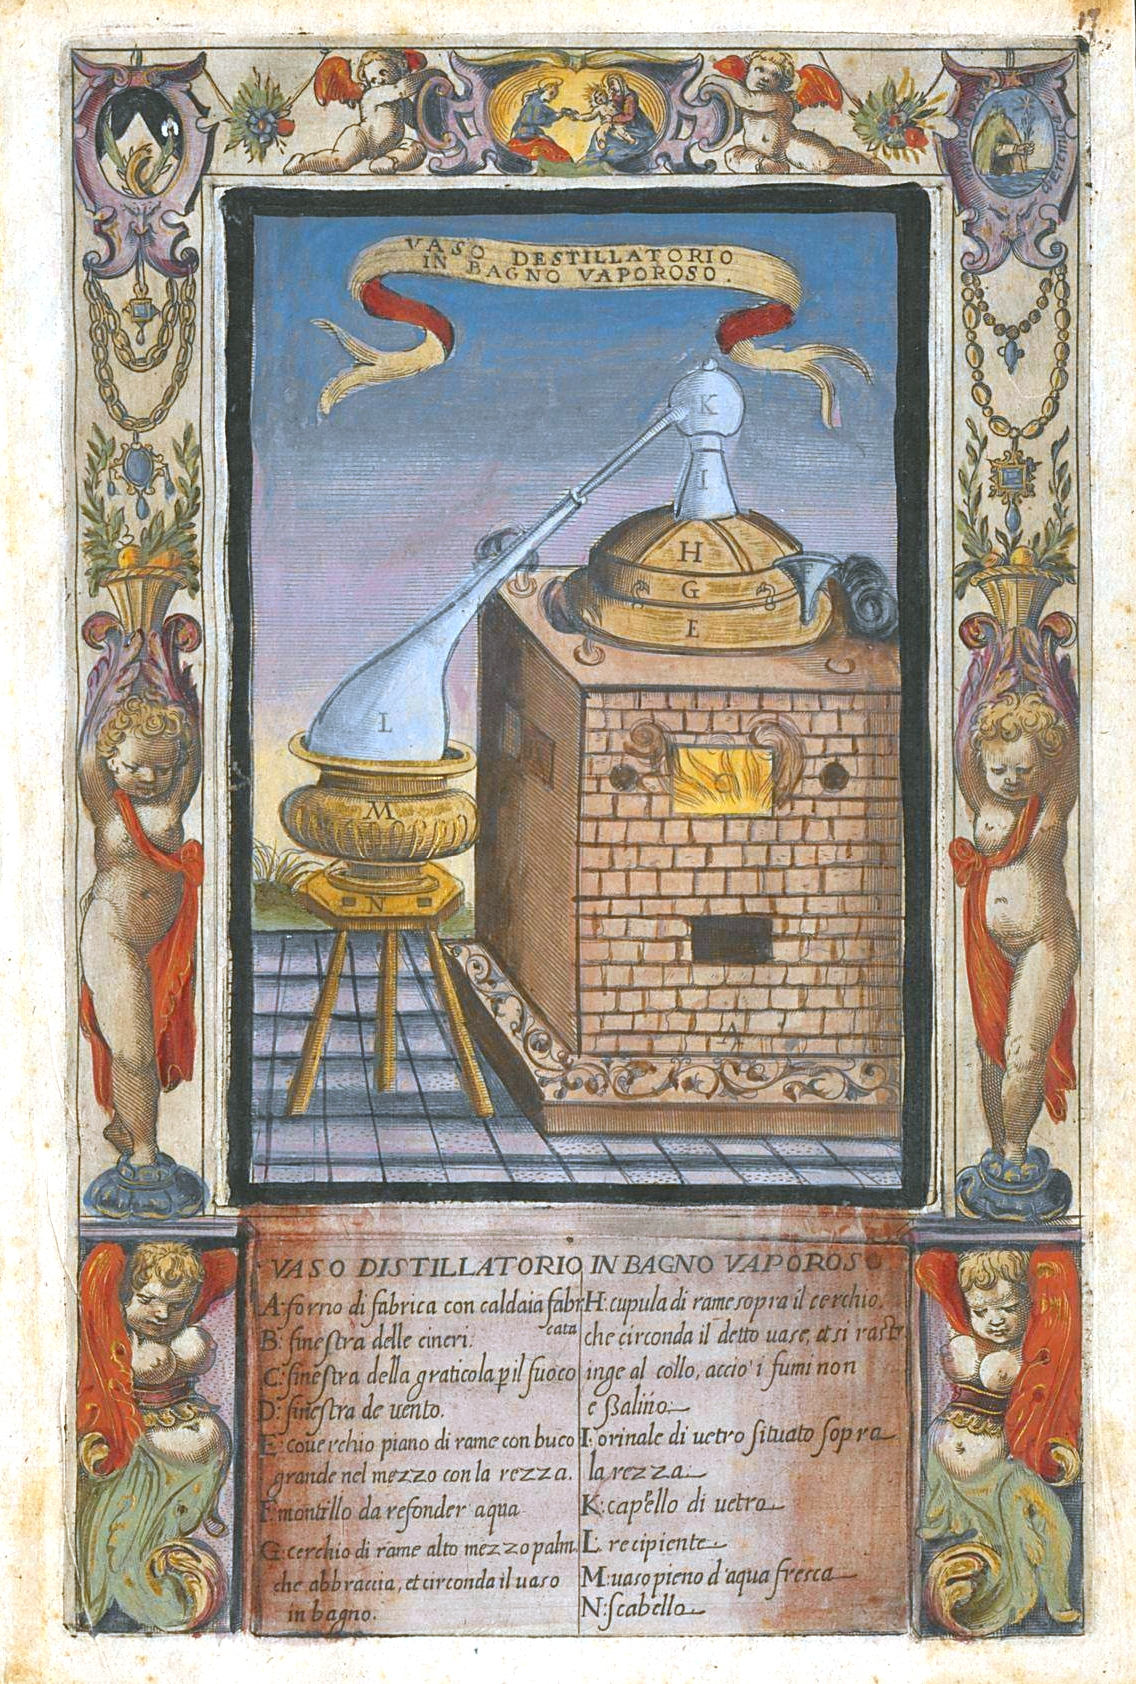 17
VASO DESTILLATORIO
IN BAGNO VAPOROSO.
K
I
H
G
E
L
M
N
A
VASO DISTILLATORIO IN BAGNO VAPOROSO
A: forno di fabrica con caldaia fabri
cata
B: finestra delle cineri.
C: finestra della graticola p il fuoco
D: finestra de uento.
E: couerchio piano di rame con buco
grande nel mezzo con la rezza.
F: montillo da refonder aqua
G: cerchio di rame alto mezzo palm.
che abbraccia, et circonda il uaso
in bagno.
H: cupula di rame sopra il cerchio,
che circonda il detto uase, et si rastr
inge al collo, accio' i fumi non
eßalino.
I: orinale di uetro situato sopra
la rezza.
K: capello di uetro
L. recipiente.
M: uaso pieno d'aqua fresca
N: scabello